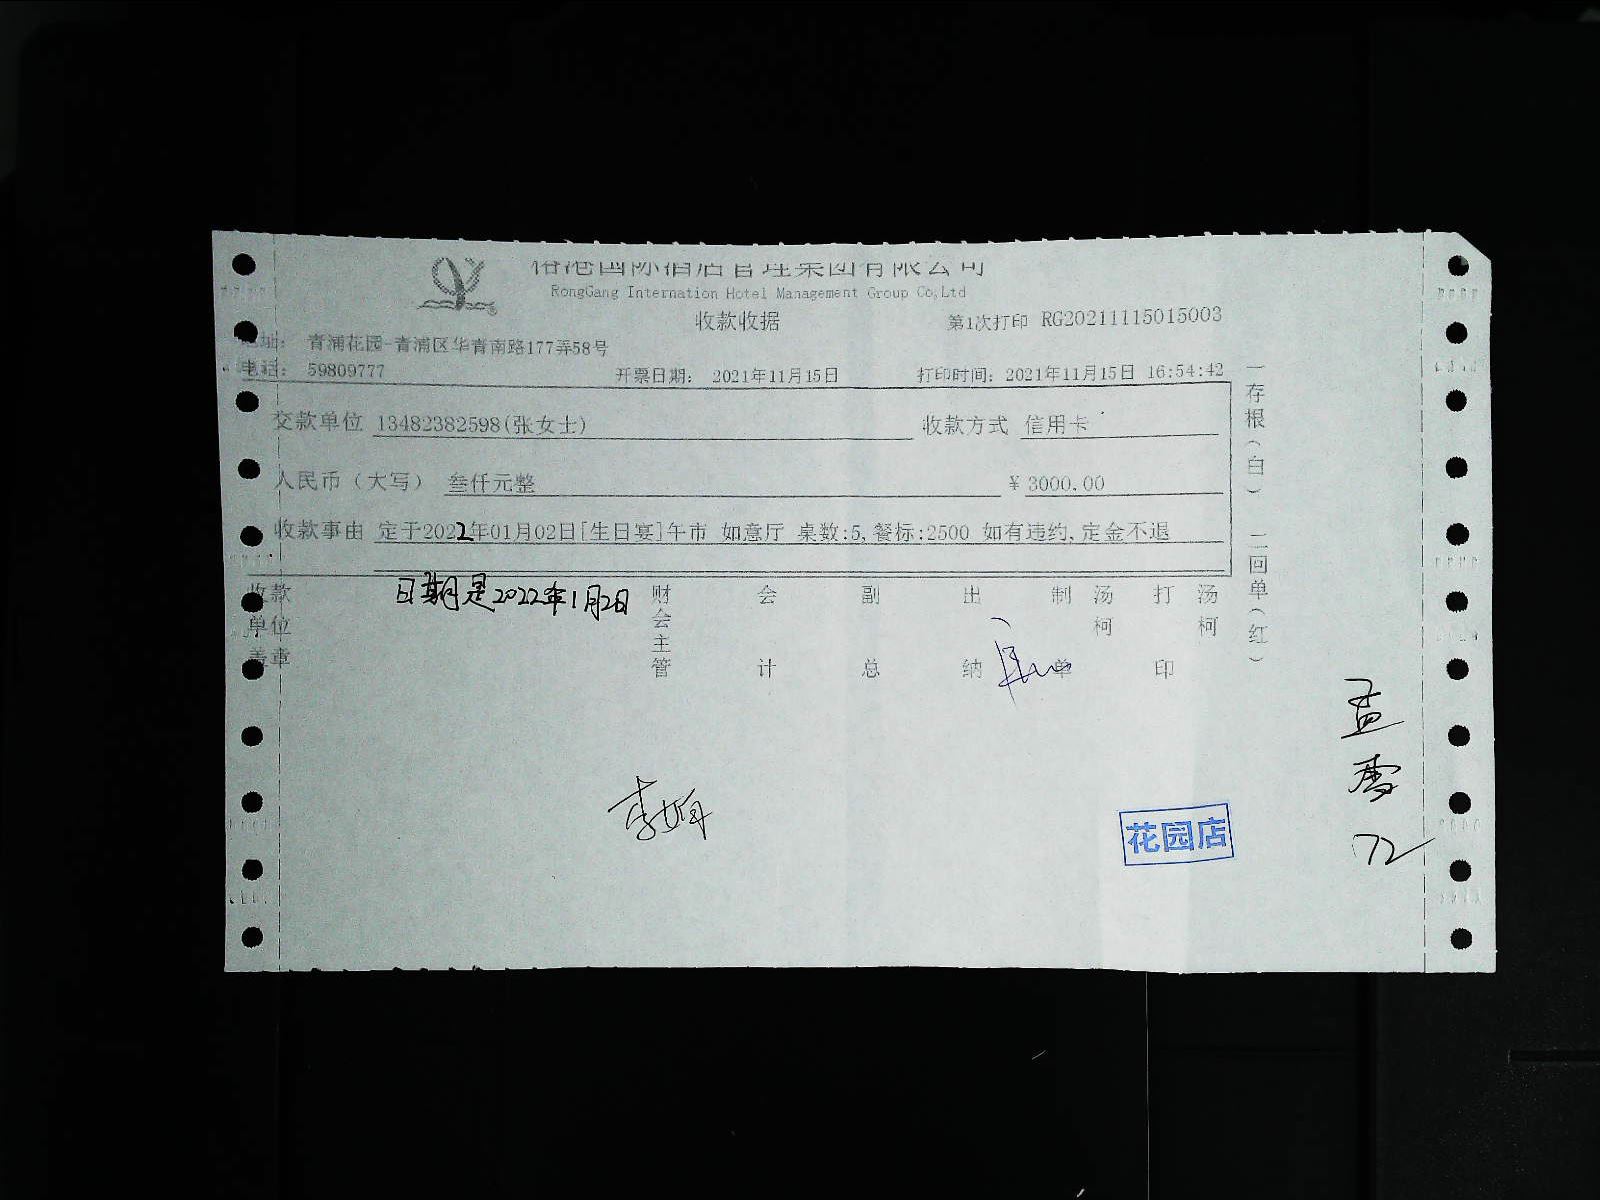 港国际酒店管理集团有限公司
RongGang Internation Hotel Management Group Co,Ltd
收款收据
第1次打印 RG20211115015003
地址: 青浦花园-青浦区华青南路177弄58号
电话: 59809777
开票日期: 2021年11月15日
打印时间: 2021年11月15日 16:54:42
交款单位 13482382598(张女士)
收款方式 信用卡
人民币（大写） 叁仟元整
¥ 3000.00
收款事由 定于2022年01月02日[生日宴]午市 如意厅 桌数:5,餐标:2500 如有违约,定金不退
收款单位盖章
日期是2022年1月2日
财会主管
会计
副总
出纳
制单
汤柯
打印
汤柯
一存根(白)
二回单(红)
孟
花园店
72